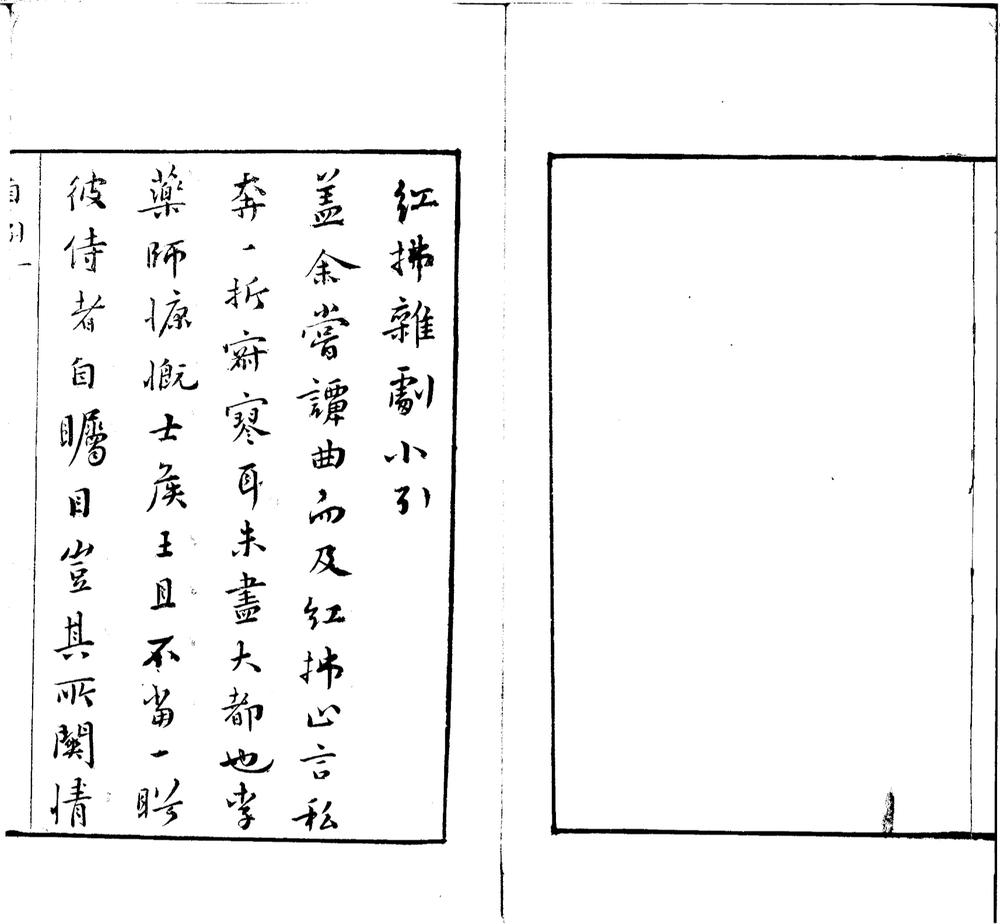 紅拂雜劇小引
盖余嘗譚曲而及紅拂止言私
奔一折窮寥耳未盡大都也李
藥師慷慨士矦王且不當一眄
彼侍者自矚目豈其所關情
自引一